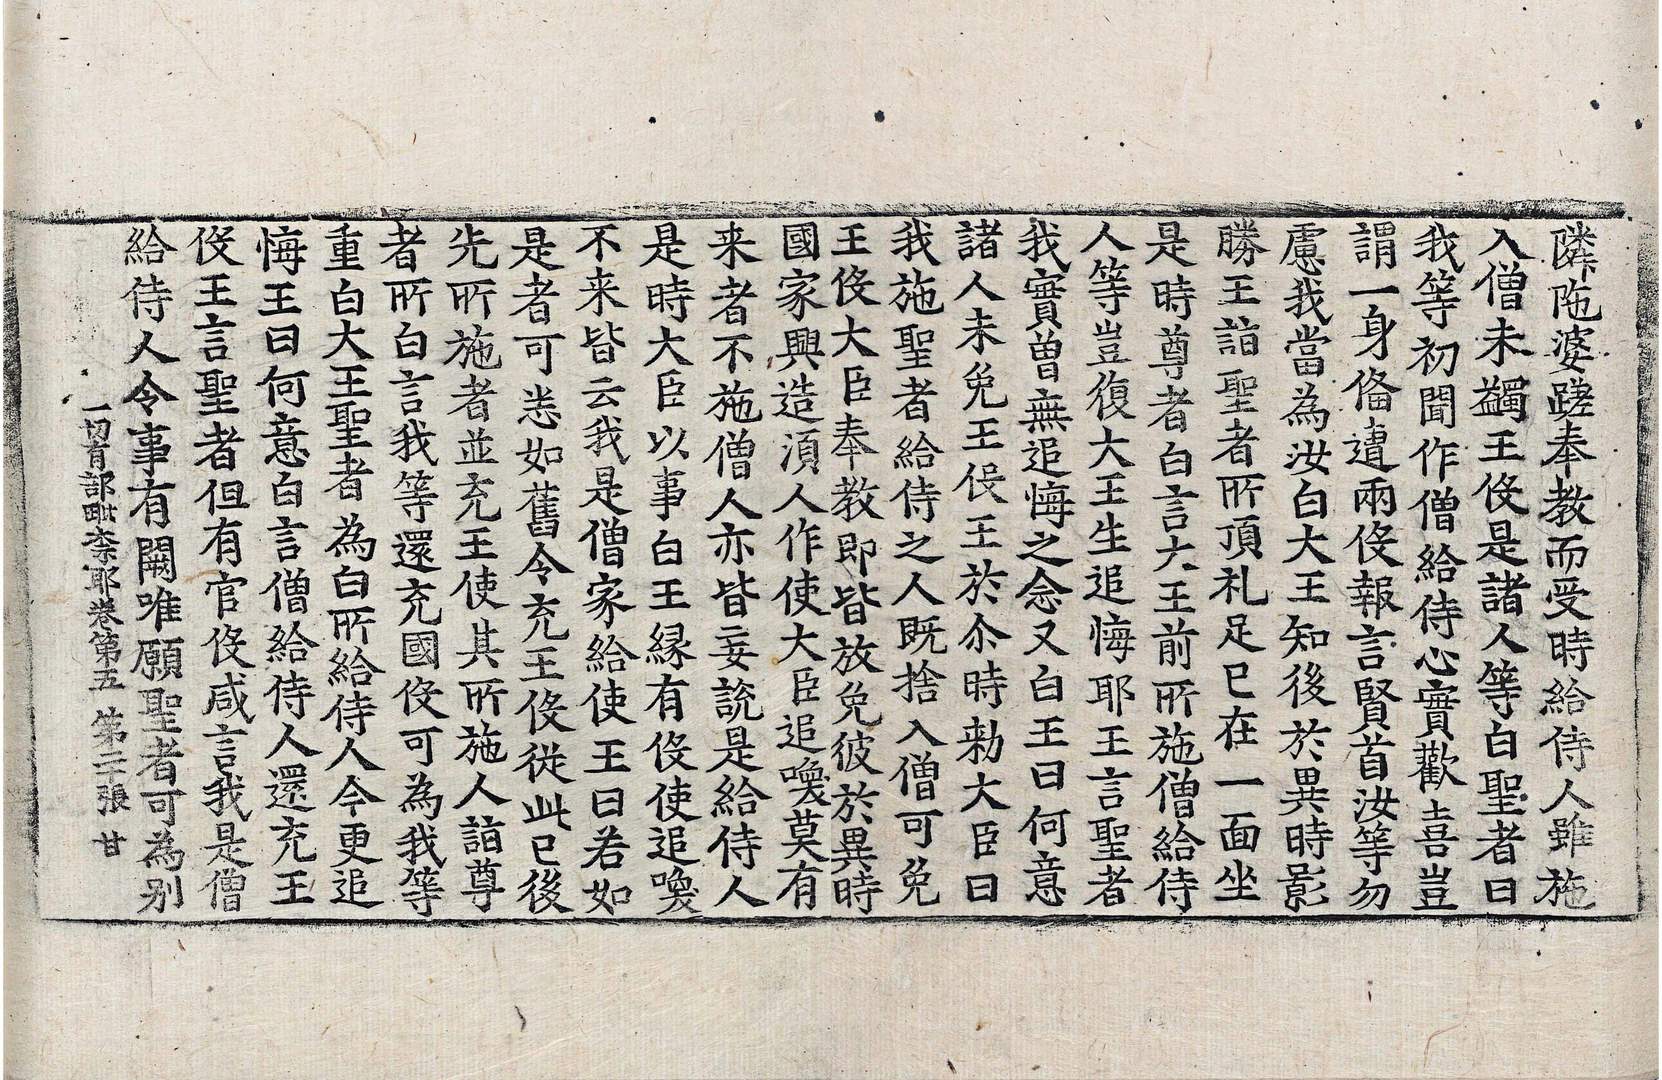 隣陁婆蹉奉教而受時給侍人雖施
入僧未蠲王伇是諸人等白聖者曰
我等初聞作僧給侍心實歡喜豈
謂一身俻遭兩伇報言賢首汝等勿
慮我當為汝白大王知後於異時影
勝王詣聖者所頂礼足已在一面坐
是時尊者白言大王前所施僧給侍
人等豈復大王生追悔耶王言聖者
我實曽無追悔之念又白王曰何意
諸人未免王伇王於尒時勑大臣曰
我施聖者給侍之人既捨入僧可免
王伇大臣奉教即皆放免彼於異時
國家興造湏人作使大臣追喚莫有
来者不施僧人亦皆妄說是給侍人
是時大臣以事白王緣有伇使追喚
不来皆云我是僧家給使王曰若如
是者可悉如舊令充王伇從此已後
先所施者並充王使其所施人詣尊
者所白言我等還充國伇可為我等
重白大王聖者為白所給侍人今更追
悔王曰何意白言僧給侍人還充王
伇王言聖者但有官伇咸言我是僧
給侍人令事有闕唯願聖者可為別
一切有部毗柰耶卷第五　第二十張　甘